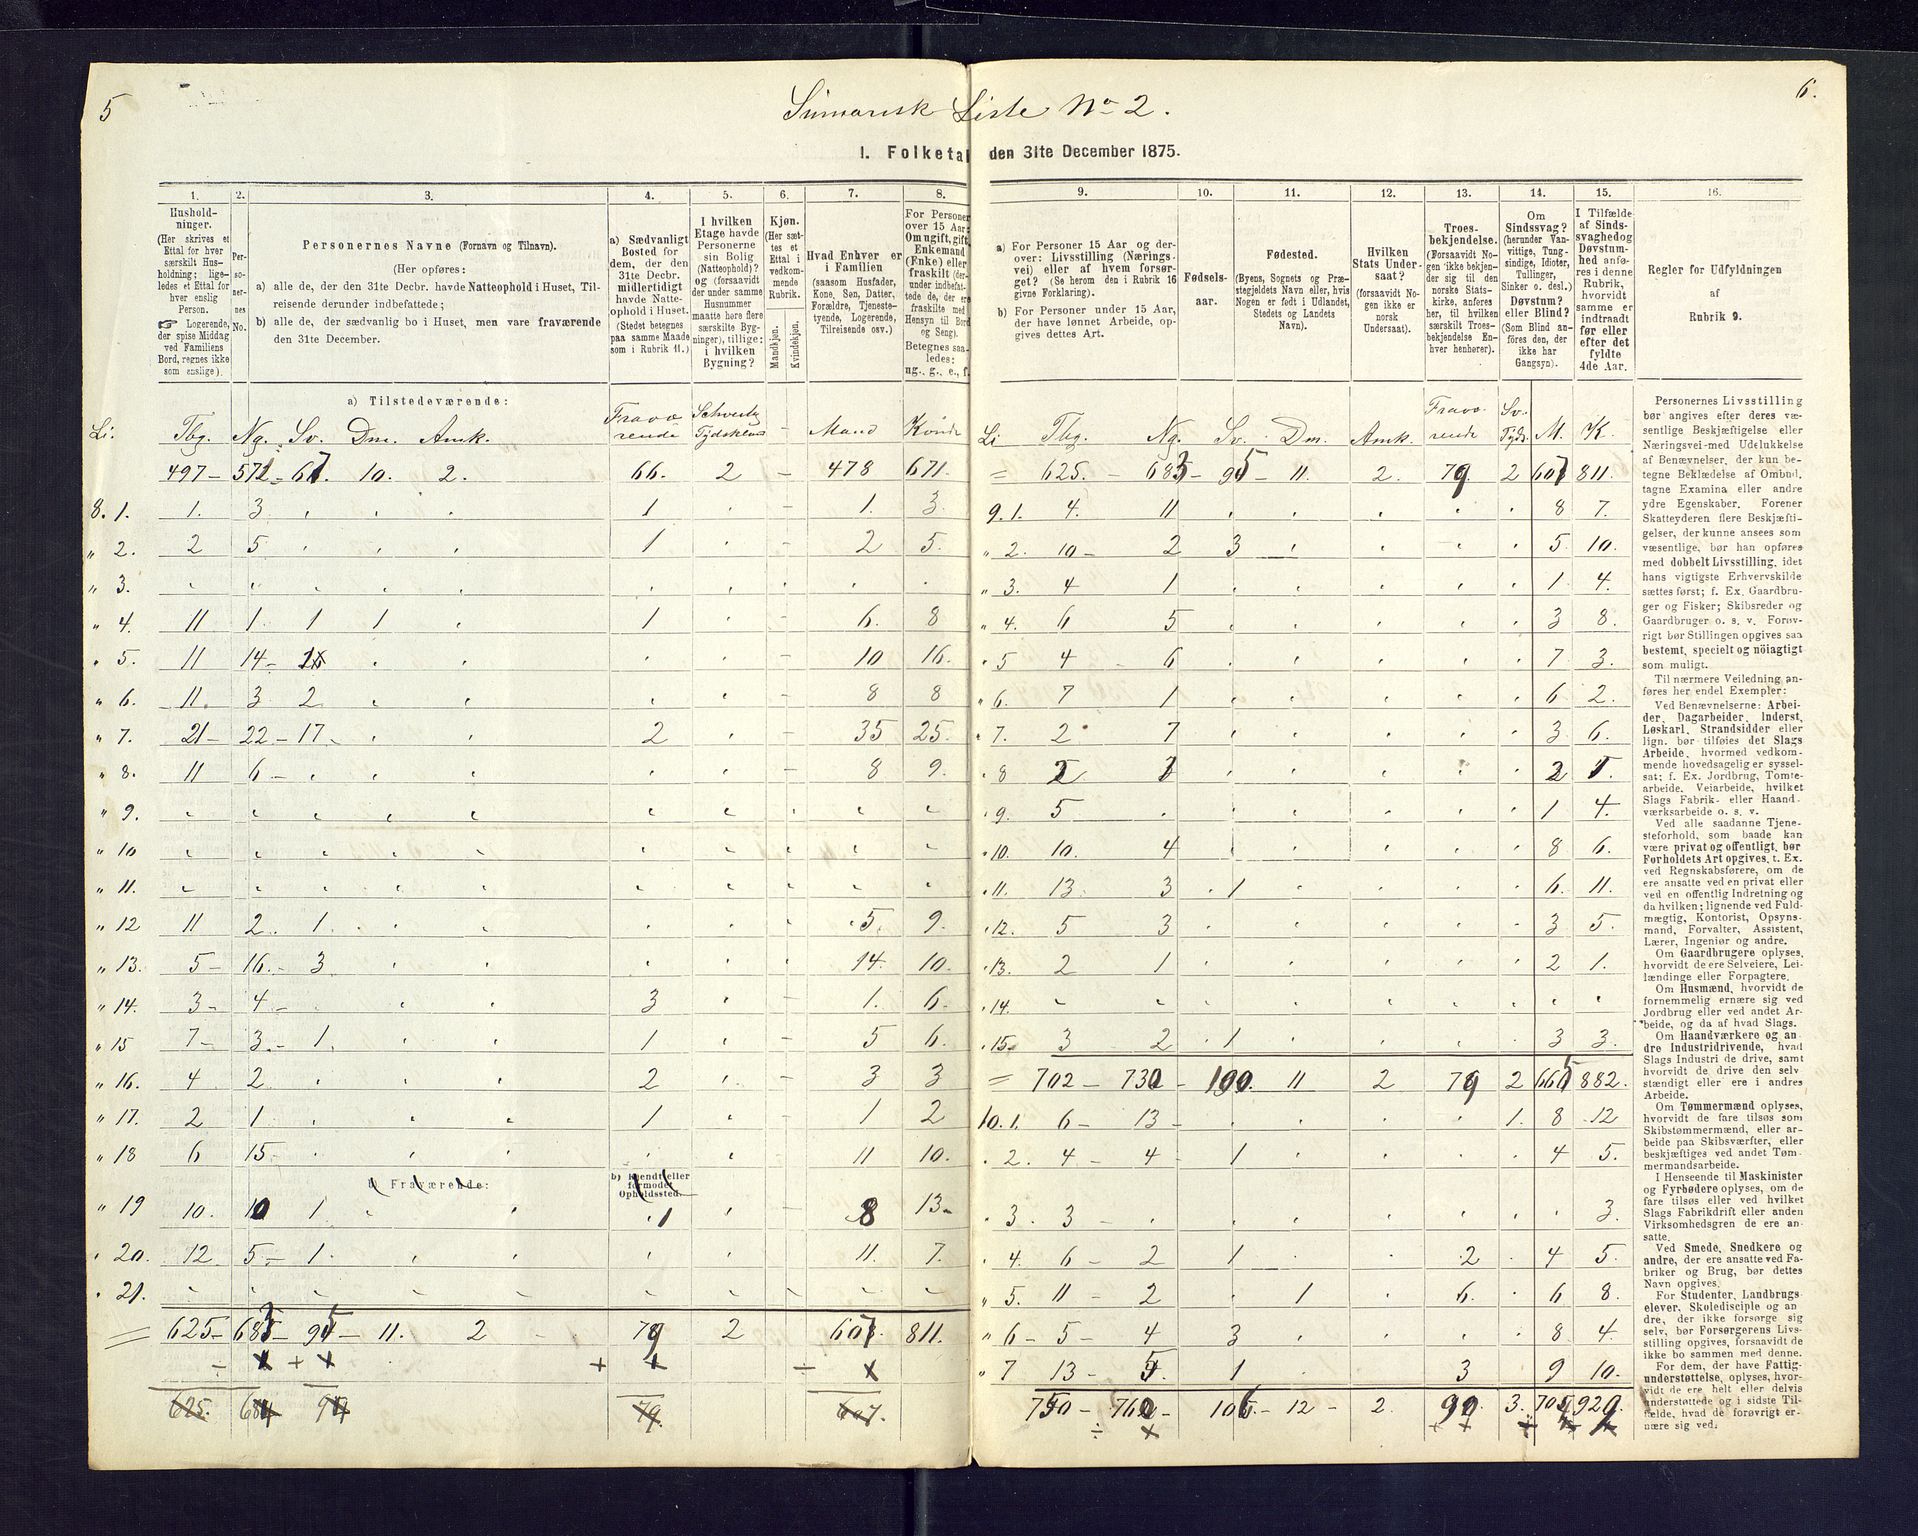 5
6.
Sumarisk Liste No 2.
1. Folketal den 31te December 1875.
1. 2. 3. 4. 5. 6. 7. 8.
Hushold-
ninger.
(Her skrives et
Ettal for hver
særskilt Hus-
holdning; lige-
ledes et Ettal for
hver enslig
Person.
☞ Logerende,
der spise Middag
ved Familiens
Bord, regnes ikke
som enslige).
Per-
so-
ner-
nes
No.
Personernes Navne (Fornavn og Tilnavn).
(Her opføres:
a) alle de, der den 31te Decbr. havde Natteophold i Huset, Til-
reisende derunder indbefattede;
b) alle de, der sædvanlig bo i Huset, men vare fraværende
den 31te December.
a) Sædvanligt
Bosted for
dem, der den
31te Decbr.
midlertidigt
havde Natte-
ophold i Huset.
(Stedet betegnes
paa samme Maade
som i Rubrik 11.)
I hvilken
Etage havde
Personerne
sin Bolig
(Natteophold)?
og (forsaavidt
der under samme
Husnummer
maatte høre flere
særskilte Byg-
ninger), tillige:
i hvilken
Bygning?
Kjøn.
(Her sæt-
tes et
Ettal i
vedkom-
mende
Rubrik.
Mandkjøn.
Kvindekjøn.
Hvad Enhver er
i Familien
(saasom Husfader,
Kone, Søn, Datter,
Forældre, Tjeneste-
tyende, Logerende,
Tilreisende osv.)
For Personer
over 15 Aar:
Om ugift, gift,
Enkemand
(Enke) eller
fraskilt (der-
under indbefat-
tede de, der ere
fraskilte med
Hensyn til Bord
og Seng).
Betegnes saa-
ledes:
ug., g., e., f.
a) Tilstedeværende:
Li. Tbg. Ng. Sv. Dm. Amk. Fravæ-rende Mand Kvinde
497 – 572 – 67. 10. 2. 66. 2 – 478 671.
8. 1. 1. 3 1 1. 3.
" 2. 2 5 1 2 5.
" 3.
" 4. 11 1 1 1 1 6. 8
" 5. 11 14 10 16.
" 6. 11 3 2 8 8
" 7. 21 – 22 – 17 2 35 25.
" 8. 11 6 8 9.
" 9.
" 10
" 11.
" 12 11 2 1 5. 9.
" 13. 5 – 16. – 3 14. 10.
" 14. 3 – 4 – 3 1. 6.
" 15 7 – 3 – 1 1 5 6.
" 16. 4 2 2 3 3
" 17. 2 1 1 1 2
" 18 6 15 11 10.
b) Fraværende:
b) Kjendt eller
formodet
Opholdssted.
" 19 10. 10 1 1 8 13
" 20. 12 5 – 1 11. 7.
" 21.
= 625 – 683 – 95 – 11. 2 79 2 607 811.
÷ x + x + x ÷ x
625. 684 94 79. 607.
9. 10. 11. 12. 13. 14. 15. 16.
a) For Personer 15 Aar og der-
over: Livsstilling (Nærings-
vei) eller af hvem forsør-
get? (Se herom den i Rubrik 16
givne Forklaring).
b) For Personer under 15 Aar,
der have lønnet Arbeide, op-
gives dettes Art.
Fødsels-
aar.
Fødested.
(Byens, Sognets og Præ-
stegjeldets Navn eller, hvis
Nogen er født i Udlandet,
Stedets og Landets
Navn).
Hvilken
Stats Under-
saat?
(forsaavidt No-
gen ikke er
norsk
Undersaat).
Troes-
bekjendelse.
(Forsaavidt No-
gen ikke bekjen-
der sig til den
norske Stats-
kirke, anføres
her, til hvilken
særskilt Troes-
bekjendelse En-
hver henhører).
Om
Sindssvag?
(herunder Van-
vittige, Tung-
sindige, Idioter,
Tullinger,
Sinker o. desl.)
Døvstum?
eller Blind?
(Som Blind an-
føres den, der
ikke har
Gangsyn).
I Tilfælde
af Sinds-
svaghedog
Døvstum-
hed anfø-
res i denne
Rubrik,
hvorvidt
samme er
indtraadt
før eller
efter det
fyldte
4de Aar.
Regler for Udfyldningen
af
Rubrik 9.
Li Tbg. Ng. Sv. Dm. Amk. Fravæ-rende M. K.
= 625. – 683 – 95 – 11. 2. 79 2 607 811.
9. 1. 4. 11 8 7.
" 2. 10 – 2 3 5 10.
" 3. 4 1 1 4.
" 4. 6 5 3 8.
" 5 4 – 6 7 3.
" 6. 7 1 6 2.
" 7. 2 7 3 6.
" 8 2
" 9. 5 1 4.
" 10. 10. 4 8 6.
" 11. 13. 3 1 6. 11.
" 12. 5 3 3 5.
" 13. 2 1 2 1.
" 14.
" 15. 3 2 1 3 3.
= 702 – 730 – 100. 11 2 79 2 665 882.
10. 1. 6 – 13 1. 8 12
" 2. 4 – 4 1 4 5.
" 3. 3 – 3.
" 4. 6 – 2 1 2 4 5.
" 5. 11 – 2 1 6. 6 8.
" 6 – 5 – 4 3 8 4.
" 7 13 – 5 1 3 9 10.
750 – 760 – 106. – 12 – 2. 90 3. 705 929.
÷ x + x
Personernes Livsstilling
bør angives efter deres væ-
sentlige Beskjæftigelse eller
Næringsvei med Udelukkelse
af Benævnelser, der kun be-
tegne Beklædelse af Ombud,
tagne Examina eller andre
ydre Egenskaber. Forener
Skatteyderen flere Beskjæfti-
gelser, der kunne ansees som
væsentlige, bør han opføres
med dobbelt Livsstilling, idet
hans vigtigste Erhvervskilde
sættes først; f. Ex. Gaardbru-
ger og Fisker; Skibsreder og
Gaardbruger o. s. v. Forøv-
rigt bør Stillingen opgives saa
bestemt, specielt og nöiagtigt
som muligt.
Til nærmere Veiledning an-
føres her endel Exempler:
Ved Benævnelserne: Arbei-
der, Dagarbeider, Inderst,
Løskarl, Strandsidder eller
lign. bør tilføies det Slags
Arbeide, hvormed vedkom-
mende hovedsagelig er syssel-
sat; f. Ex. Jordbrug, Tomte-
arbeide, Veiarbeide, hvilket
Slags Fabrik- eller Haand-
værksarbeide o. s. v.
Ved alle saadanne Tjene-
steforhold, som baade kan
være privat og offentligt, bør
Forholdets Art opgives, t. Ex.
ved Regnskabsførere, om de
ere ansatte ved en privat eller
ved en offentlig Indretning og
da hvilken; lignende ved Fuld-
mægtig, Kontorist, Opsyns-
mand, Forvalter, Assistent,
Lærer, Ingeniør og andre.
Om Gaardbrugere oplyses,
hvorvidt de ere Selveiere, Lei-
lændinge eller Forpagtere.
Om Husmænd, hvorvidt de
fornemmelig ernære sig ved
Jordbrug eller ved andet Ar-
beide, og da af hvad Slags.
Om Haandværkere og an-
dre Industridrivende, hvad
Slags Industri de drive, samt
hvorvidt de drive den selv-
stændigt eller ere i andres
Arbeide.
Om Tømmermænd oplyses,
hvorvidt de fare tilsøs som
Skibstømmermænd, eller ar-
beide paa Skibsværfter, eller
beskjæftiges ved andet Tøm-
mermandsarbeide.
I Henseende til Maskinister
og Fyrbødere oplyses, om de
fare tilsøs eller ved hvilket
Slags Fabrikdrift eller anden
Virksomhedsgren de ere an-
satte.
Ved Smede, Snedkere og
andre, der ere ansatte ved Fa-
briker og Brug, bør dettes
Navn opgives.
For Studenter, Landbrugs-
elever, Skoledisciple og an-
dre, der ikke forsørge sig
selv, bør Forsørgerens Livs-
stilling opgives, forsaavidt de
ikke bo sammen med denne.
For dem, der have Fattig-
understøttelse, oplyses, hvor-
vidt de ere helt eller delvis
understøttede og i sidste Til-
fælde, hvad de forøvrigt er-
nære sig ved.